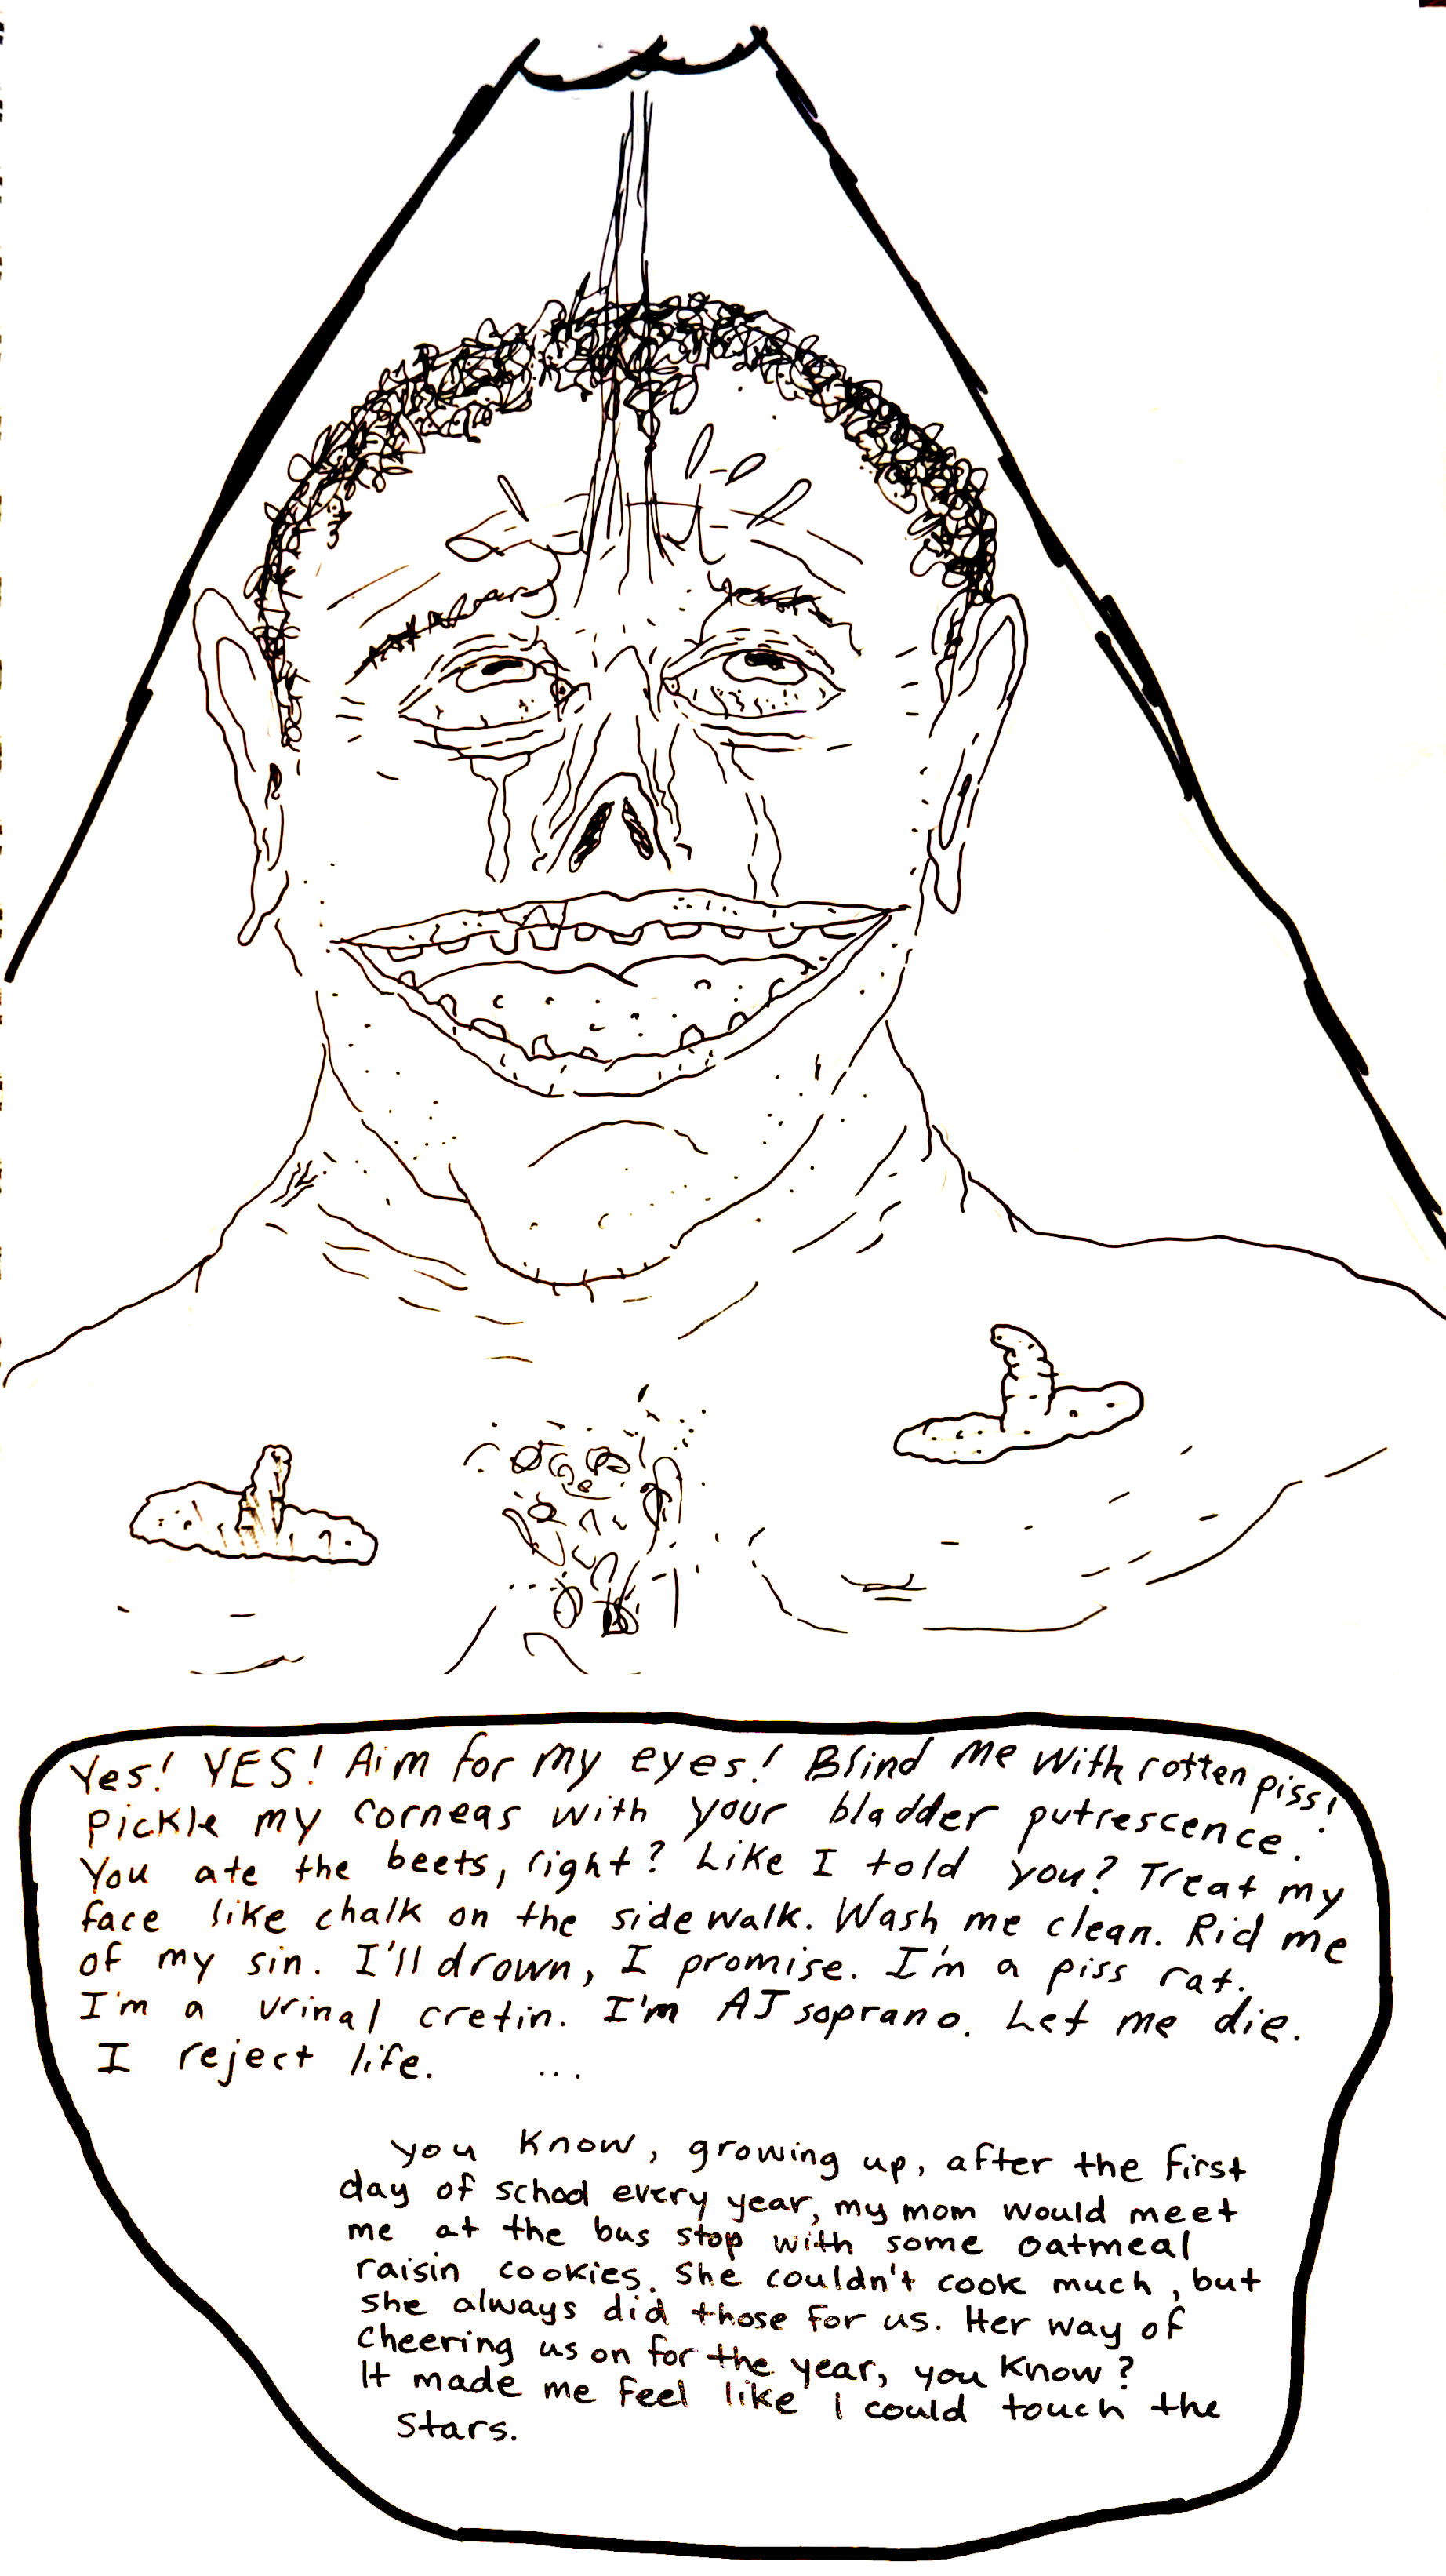 Yes! YES! Aim for my eyes! Blind me with rotten piss!
Pickle my corneas with your bladder putrescence.
You ate the beets, right? Like I told you? Treat my
face like chalk on the sidewalk. Wash me clean. Rid me
of my sin. I'll drown, I promise. I'm a piss rat.
I'm a urinal cretin. I'm AJ soprano. Let me die.
I reject life. ...
you know, growing up, after the first
day of school every year, my mom would meet
me at the bus stop with some oatmeal
raisin cookies. She couldn't cook much, but
she always did those for us. Her way of
cheering us on for the year, you know?
It made me feel like I could touch the
stars.